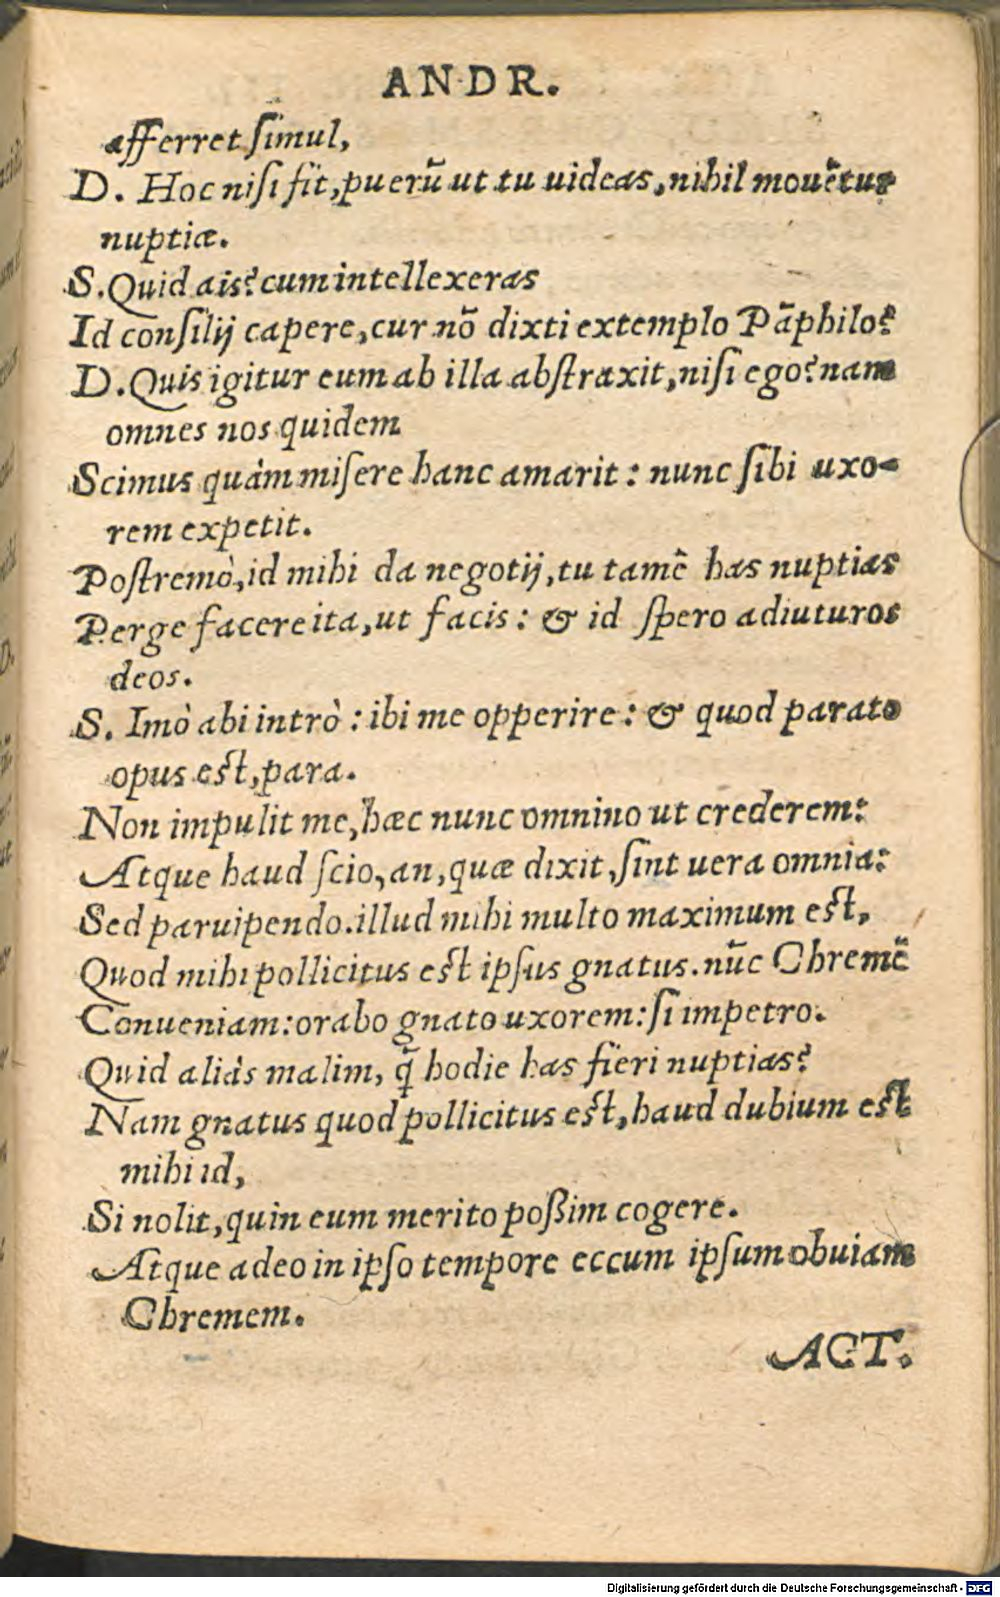 ANDR.
afferret simul,
D. Hoc nisi fit, puerũ ut tu uideas, nihil mouẽtur
nuptiæ.
S. Quid ais? cum intellexeras
Id consilij capere, cur nõ dixti extemplo Pãphilo?
D. Quis igitur eum ab illa abstraxit, nisi ego? nam
omnes nos quidem
Scimus quàm misere hanc amarit: nunc sibi uxo-
rem expetit.
Postremò, id mihi da negotij, tu tamẽ has nuptias
Perge facere ita, ut facis: & id spero adiuturos
deos.
S. Imò abi intrò: ibi me opperire: & quod parato
opus est, para.
Non impulit me, hæc nunc omnino ut crederem:
Atque haud scio, an, quæ dixit, sint uera omnia:
Sed paruipendo. illud mihi multo maximum est,
Quod mihi pollicitus est ipsus gnatus. nũc Chremẽ
Conueniam: orabo gnato uxorem: si impetro.
Quid aliàs malim, q̃ hodie has fieri nuptias?
Nam gnatus quod pollicitus est, haud dubium est
mihi id,
Si nolit, quin eum merito poßim cogere.
Atque adeo in ipso tempore eccum ipsum obuiam
Chremem.
ACT.
Digitalisierung gefördert durch die Deutsche Forschungsgemeinschaft - DFG